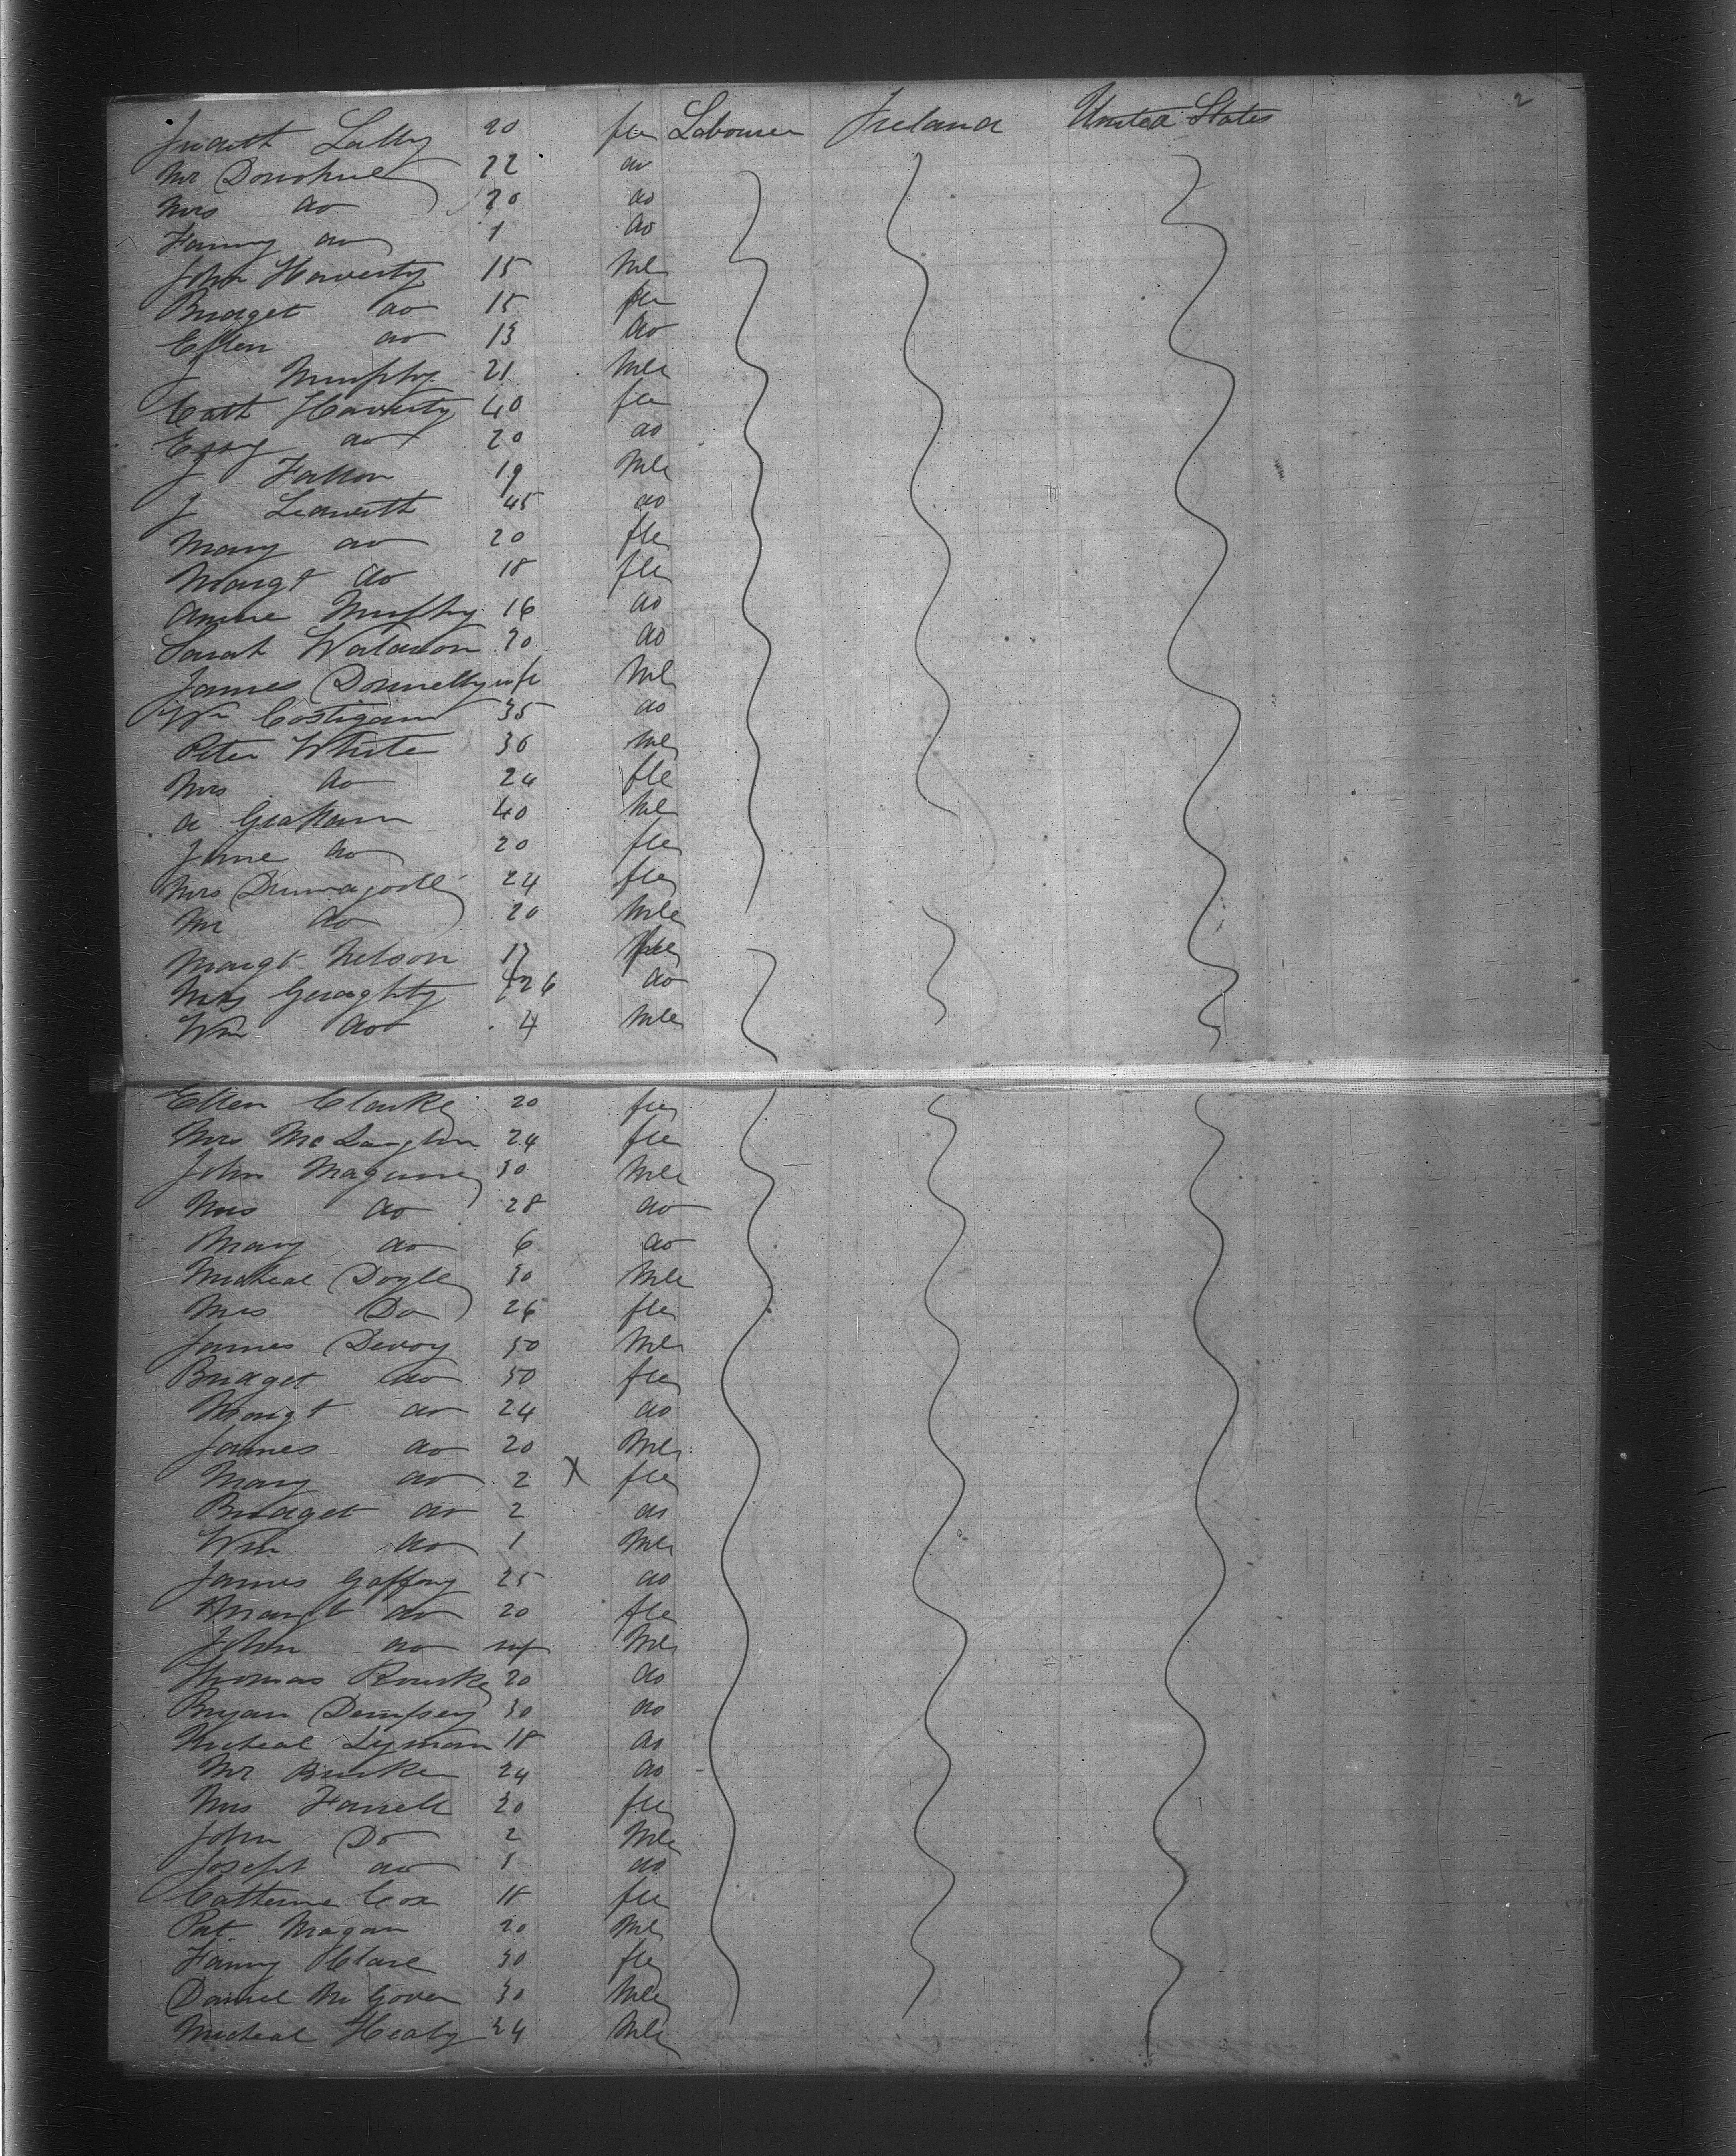 2
Judith Lally 20 fle Labourer Ireland United States
Mr Donohue 22 do
Mrs do 20 do
Fanny do 1 do
John Haverty 15 Mle
Bridget do 15 fle
Ellen do 13 do
J Murphy 21 Mle
Cath Haverty 40 fle
do 20 do
J Fallon 19 Mle
J 45 do
Mary do 20 fle
Margt do 18 fle
Annie Murphy 16 do
Sarah 30 do
James Donnelly inft Mle
Wm Costigan 35 do
Peter White 36 Mle
Mrs do 24 fle
A Graham 40 Mle
Jane do 20 fle
Mrs 24 fle
Mr do 20 Mle
Margt Nelson 17 fle
Mrs Geraghty 26 do
Wm do 4 Mle
Ellen Clarke 20 fle
Mrs McLaughlin 24 fle
John Maguire 30 Mle
Mrs do 28 do
Mary do 6 do
Micheal Doyle 30 Mle
Mrs Do 26 fle
James Devoy 50 Mle
Bridget do 50 fle
Margt do 24 do
James do 20 Mle
Mary do 2 X fle
Bridget do 2 do
Wm do 1 Mle
James Gaffney 25 do
Margt do 20 fle
John do inf Mle
Thomas Rourke 20 do
Bryan Dempsey 30 do
Micheal Lyman 18 do
Mr Burke 24 do
Mrs Farrell 30 fle
John Do 2 Mle
Joseph do 1 do
Catherine Cox 18 fle
Pat Magan 20 Mle
Fanny Clare 30 fle
Daniel McGover 30 Mle
Micheal Healy 24 Mle